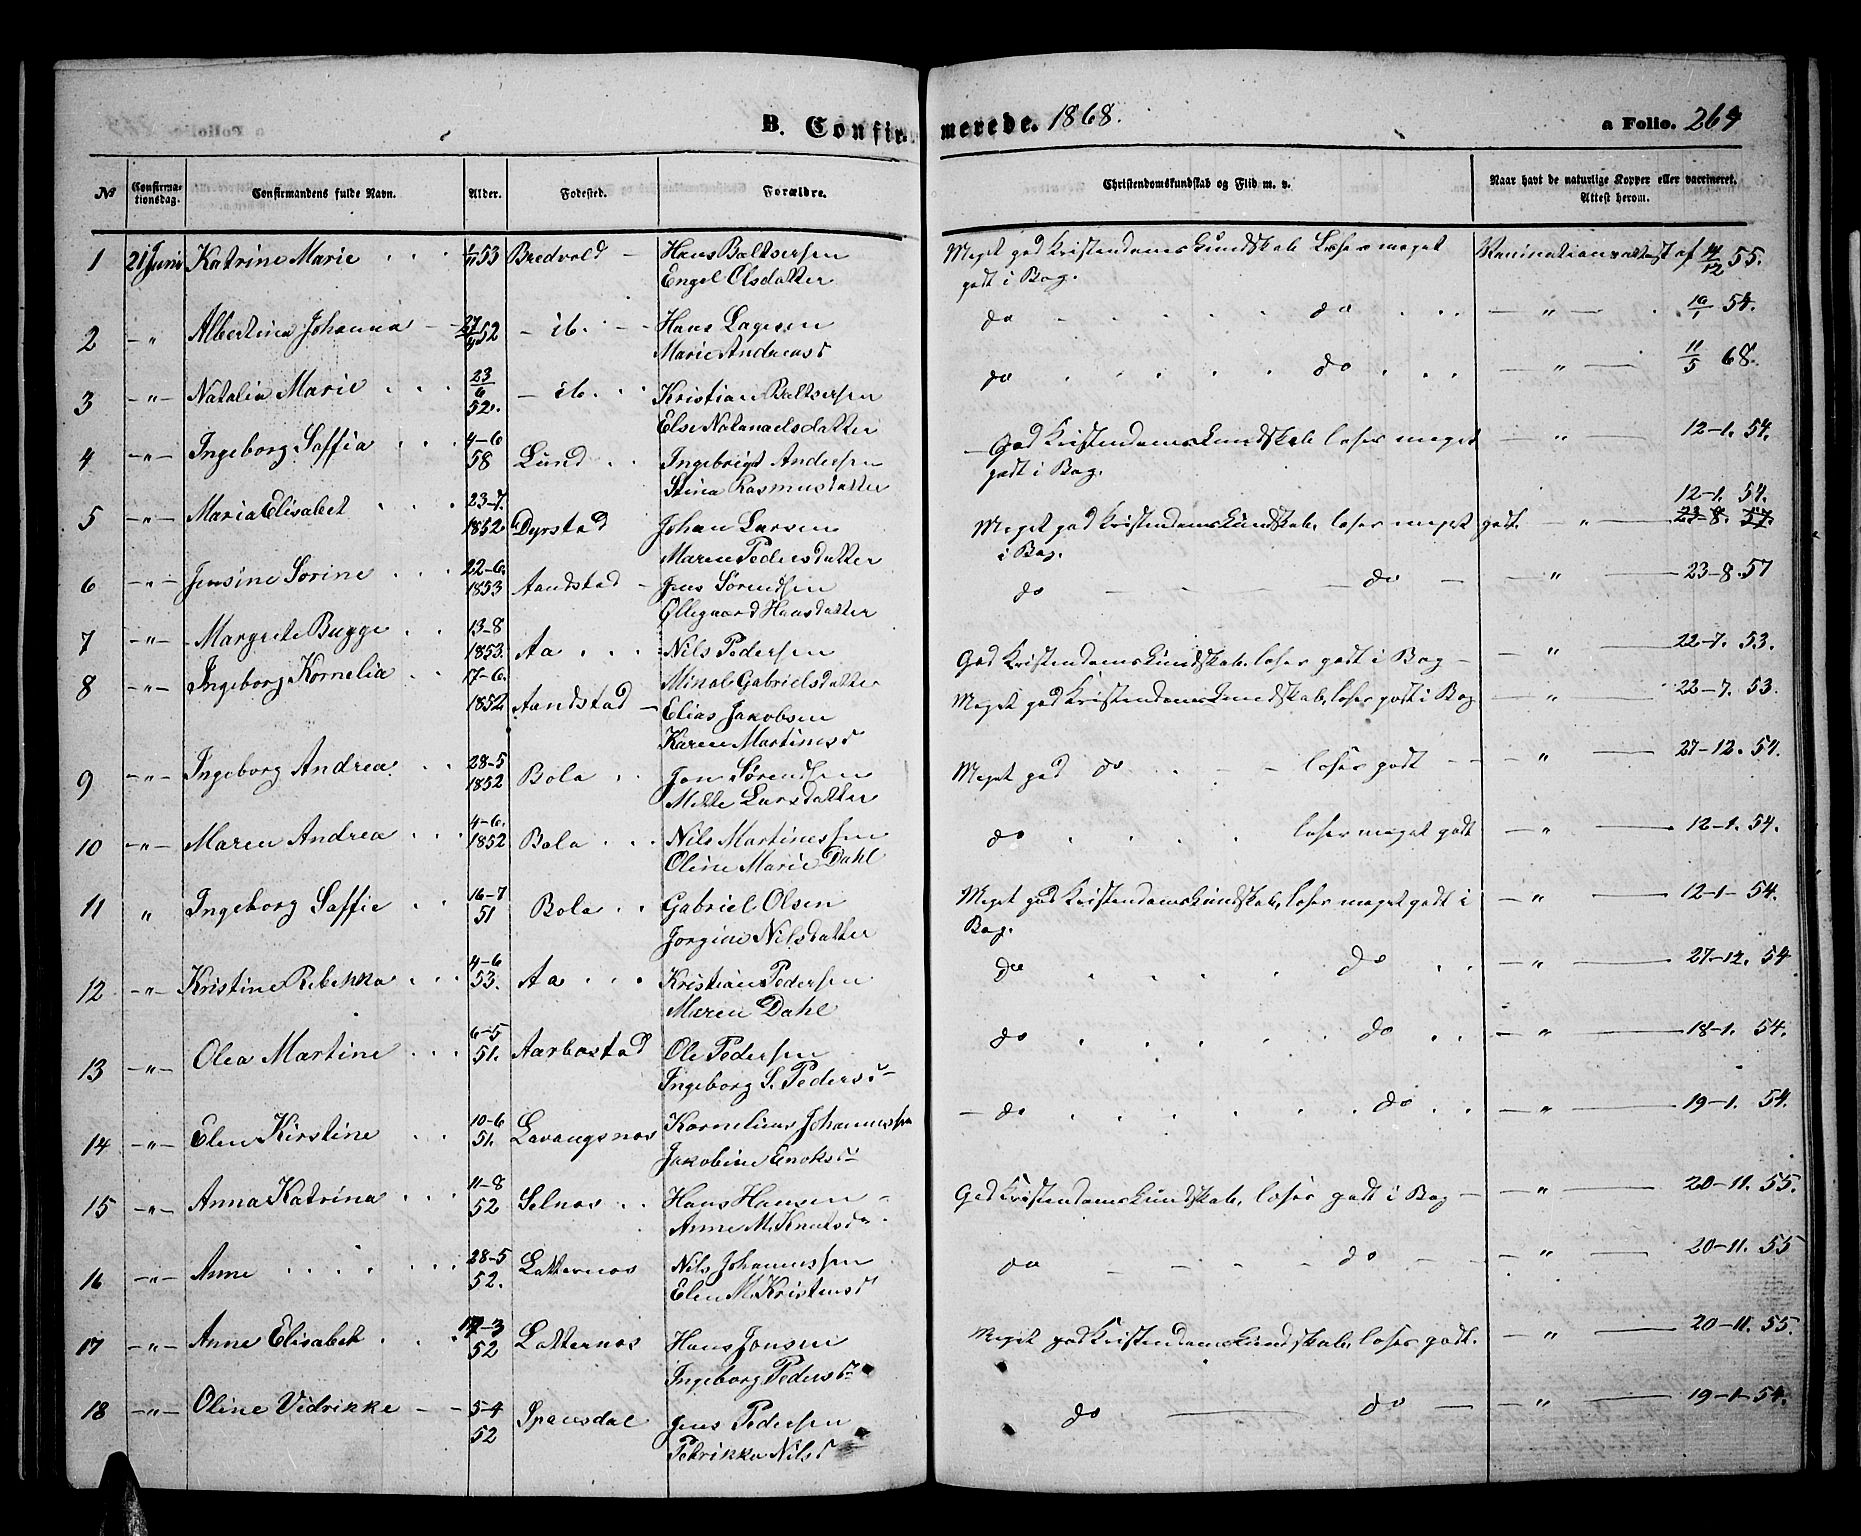 B. Confirmerede. 1868. a Folio. 264
No Confirmationsdag. Confirmandens fulde Navn. Alder. Fødested. Forældre. Christendomskundskab og Flid m. v. Naar havt de naturlige Kopper eller vaccineret. Attest herom.
1 21 Juni Katrine Marie 53 Bredvold Hans Baltsersen Meget god Kristendomskundskab Læser meget Vaccinationsattest af 4/12 55.
Engel Olsdatter godt i Bog.
2 -"- Albertina Johanna 27 52 - ib. - Hans Lagesen do do -"- 10/1 54.
Marie Andreasd
3 -"- Natalia Marie 23/6 52. - ib. Kristian Baltsersen do do -"- 11/5 68.
Else Natanaelsdatter
4 -"- Ingeborg Saffia 4-6 58 Lund Ingebrigt Andersen God Kristendomskundskab læser meget -"- 12-1. 54.
Stina Rasmusdatter godt i Bog.
5 -"- Maria Elisabet 23-7. 1852 Dyrstad Johan Larsen Meget god Kristendomskundskab, læser meget godt -"- 12-1. 54. 23-8. 57.
Maren Pedersdatter i Bog.
6 -"- Jensine Sorine 22-6. 1853 Aandstad Jens Sørendsen do do -"- 23-8. 57
Ollegaard Hansdatter
7 -"- Margrete Bugge 13-8 1853. Aa Nils Pedersen God Kristendomskundskab, læser godt i Bog -"- 22-7. 53.
Minal Gabrielsdatter
8 -"- Ingeborg Kornelia 17-6. 1852 Aandstad Elias Jakobsen Meget god Kristendomskundskab, læser godt i Bog -"- 22-7. 53.
Karen Martinesd
9 -"- Ingeborg Andrea 28-5 1852 Bola Jon Sørendsen Meget god do læser godt -"- 27-12. 54.
Mette Larsdatter
10 -"- Maren Andrea 4-6. 1852 Bola Nils Martinessen do læser meget godt -"- 12-1. 54.
Oline Marie Dahl
11 " Ingeborg Saffie 16-7 51 Bola Gabriel Olsen Meget god Kristendomskundskab, læser meget godt i -"- 12-1- 54.
Jorgine Nilsdatter Bog.
12 -"- Kristine Rebekka 4-6 53. Aa Kristian Pedersen do do -"- 27-12. 54
Maren Dahl
13 -"- Olea Martine 6-5 51. Aarbostad Ole Pedersen do do -"- 18-1. 54.
Ingeborg S. Pedersd
14 -"- Elen Kirstine 10-6 51. Lavangsnæs Kornelius Johannessen do do -"- 19-1. 54.
Jakobine Enoksd
15 -"- Anna Katrina 11-8 52 Selnæs Hans Hansen God Kristendomskundskab, læser godt i Bog -"- 20-11. 55.
Anne M. Knutsd
16 -"- Anne 28-5 52. Latternæs Nils Johannessen do do -"- 20-11. 55
Elen M. Kristensd
17 -"- Anne Elisabet -3 52 Latternæs Hans Jonsen Meget god Kristendomskundskab, læser godt. -"- 20-11. 55.
Ingeborg Pedersd
18 -"- Oline Vidrikke 5-4 52 Spansdal Jens Pedersen do do -"- 19-1-54.
Petrikka Nilsd